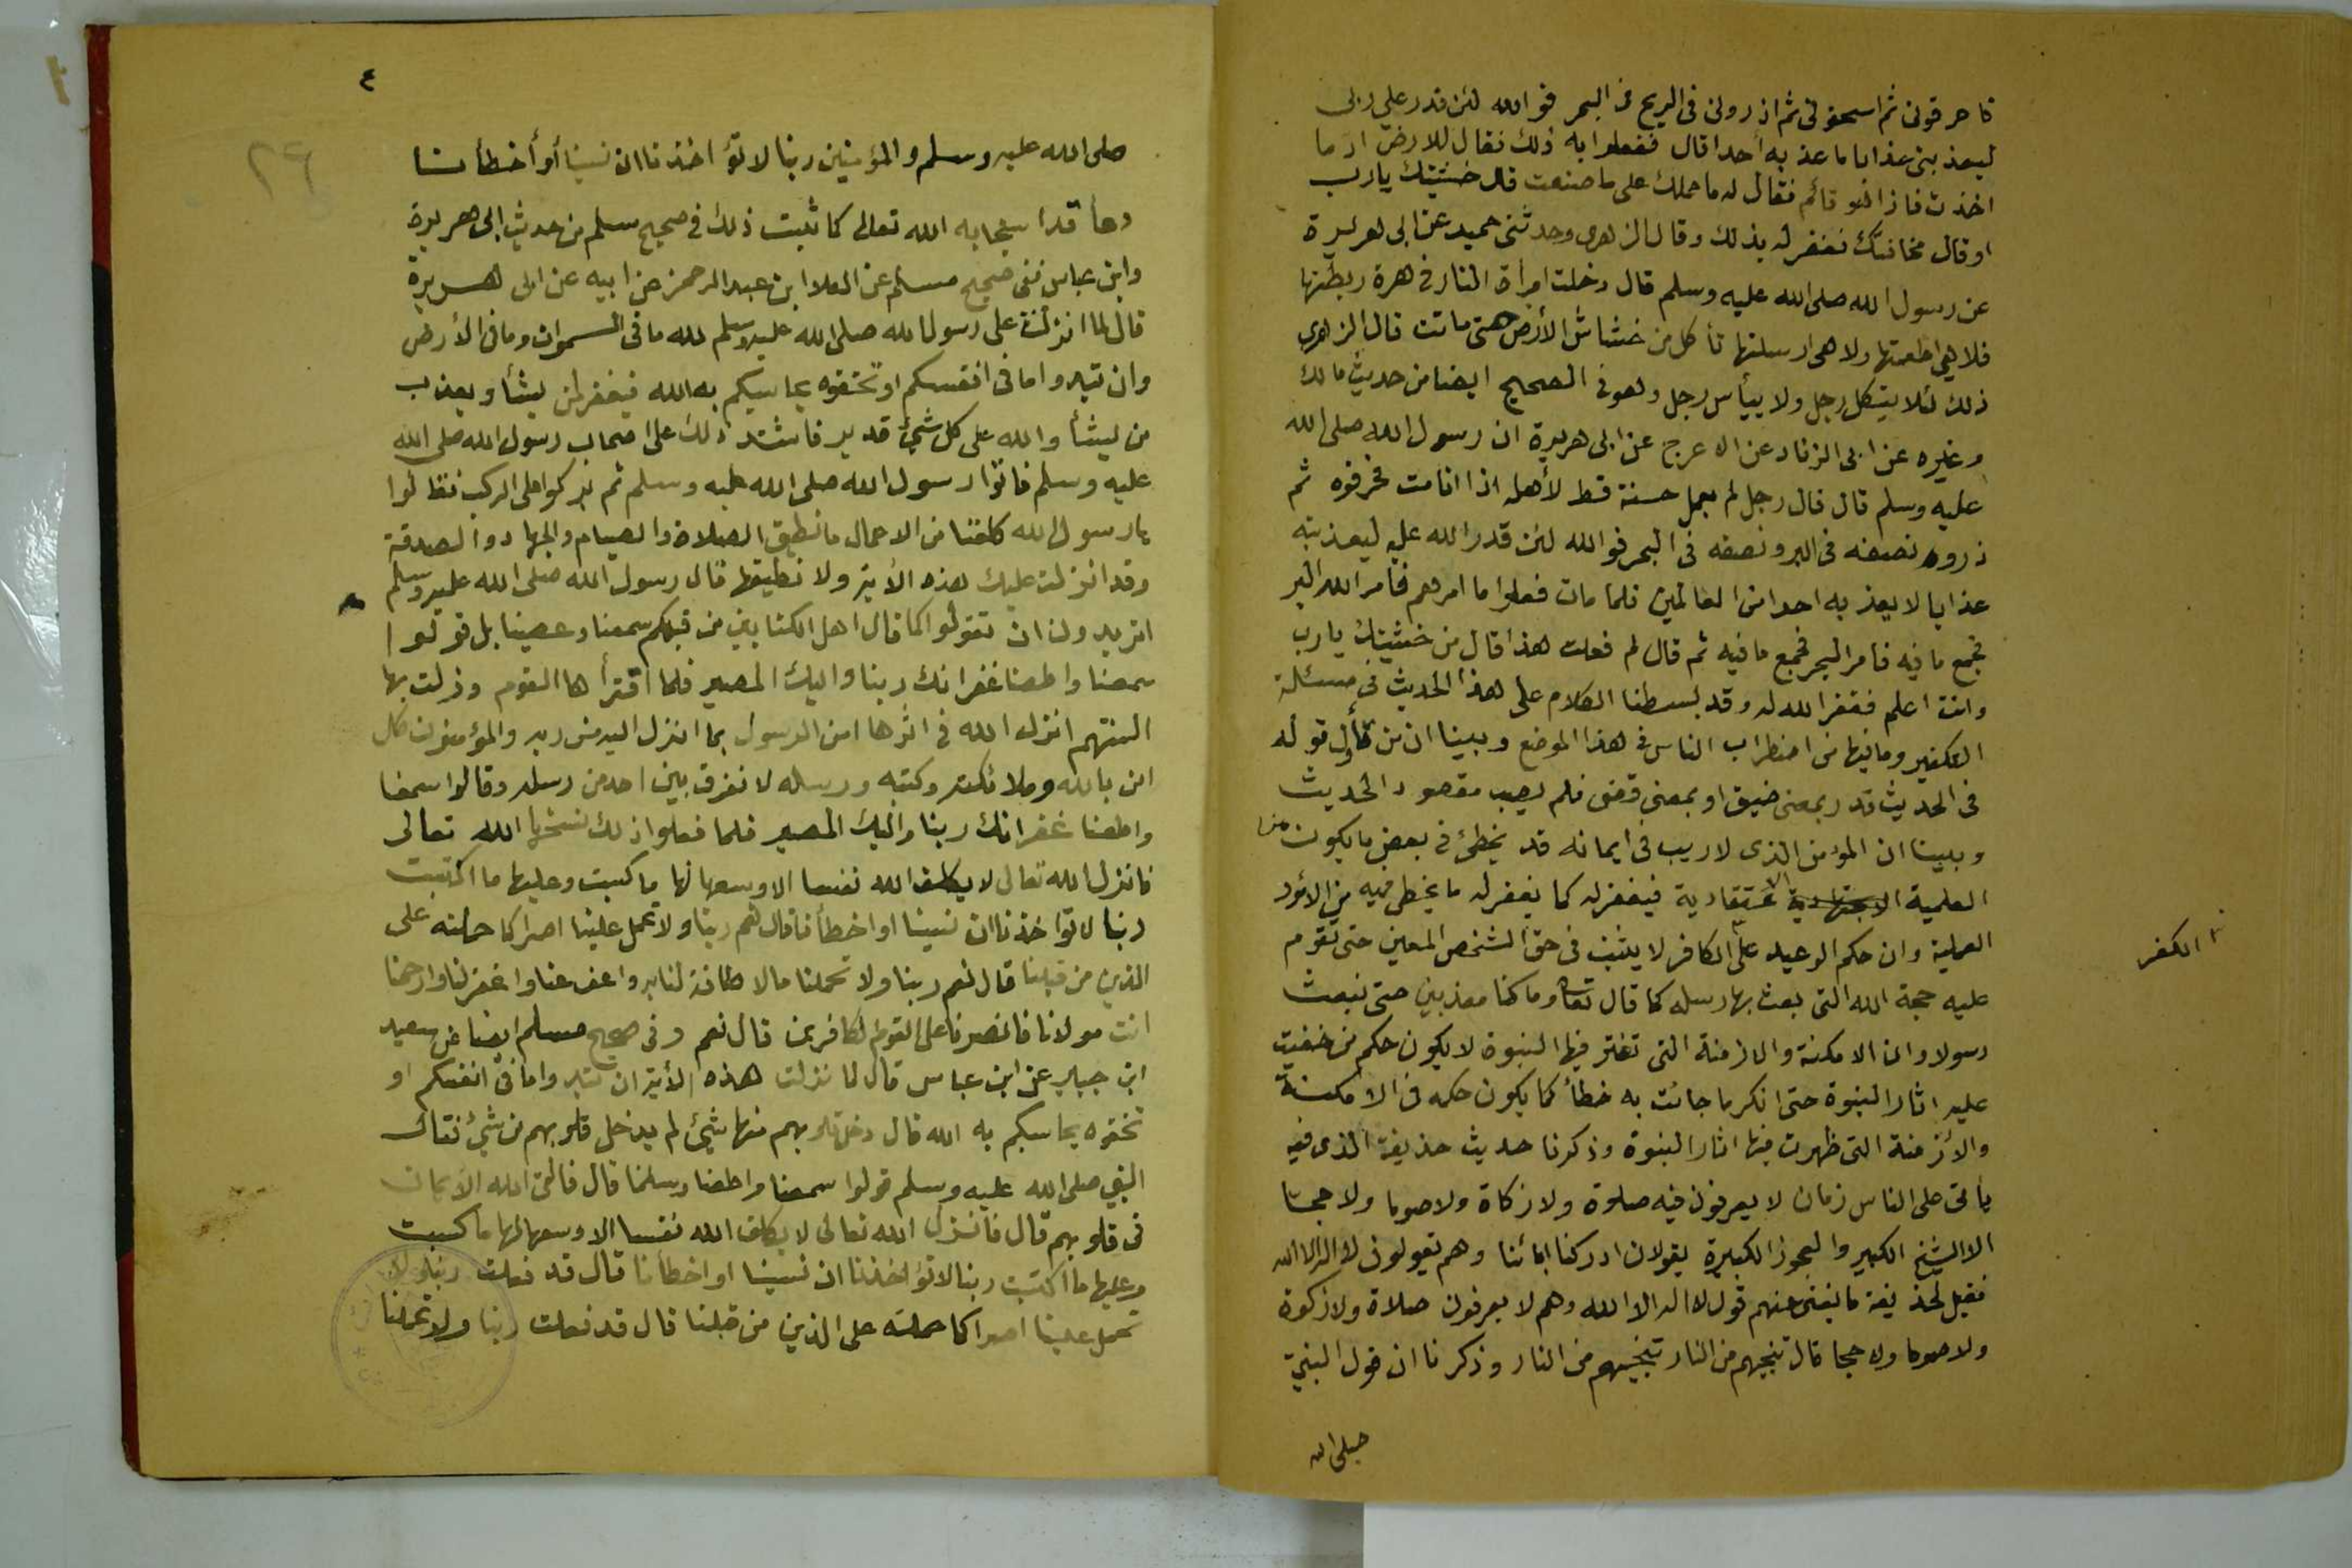 فاحرقونى ثم اسحقونى ثم اذرونى فى الريح فى البحر فوالله لئن قدر علي ربى
ليعذبنى عذابا ما عذبه أحدا قال ففعلوا به ذلك فقال للارض اد ما
اخذت فاذا هو قائم فقال له ما حملك على ما صنعت قال خشيتك يا رب
او قال مخافتك فغفر له بذلك وقال الزهرى وحدثنى حميد عن ابى هريرة
عن رسول الله صلى الله عليه وسلم قال دخلت امرأة النار فى هرة ربطتها
فلا هى اطعمتها ولا هى ارسلتها تأكل من خشاش الأرض حتى ماتت قال الزهرى
ذلك لئلا يتكل رجل ولا ييأس رجل وهو فى الصحيح ايضا من حديث مالك
وغيره عن ابى الزناد عن الاعرج عن ابى هريرة ان رسول الله صلى الله
عليه وسلم قال قال رجل لم يعمل حسنة قط لأهله اذا انامت فحرقوه ثم
ذروه نصفه فى البر ونصفه فى البحر فوالله لئن قدر الله عليه ليعذبنه
عذابا لا يعذبه احدا من العالمين فلما مات فعلوا ما امرهم فامر الله البر
فجمع ما فيه فامر البحر فجمع ما فيه ثم قال لم فعلت هذا قال من خشيتك يا رب
وانت اعلم فغفر الله له وقد بسطنا الكلام على هذا الحديث فى مسئلة
التكفير وما فيها من اضطراب الناس فى هذا الموضع وبينا ان من تأول قوله
فى الحديث قدر بمعنى ضيق او بمعنى قضى فلم يصب مقصود الحديث
وبينا ان المؤمن الذى لا ريب فى ايمانه قد يخطئ فى بعض ما يكون من
العلمية الاعتقادية فيغفر له كما يغفر له ما يخطى فيه من الأمور
العملية وان حكم الوعيد على الكافر لا يثبت فى حق الشخص المعين حتى تقوم
الكفر
عليه حجة الله التى بعث بها رسله كما قال تعا وما كنا معذبين حتى نبعث
رسولا وان الامكنة والازمنة التى تفتر فيها النبوة لا يكون حكم من خفيت
عليه اثار النبوة حتى انكر ما جائت به خطأ كما يكون حكمه فى الامكنة
والأزمنة التى ظهرت فيها اثار النبوة وذكرنا حديث حذيفة الذى فيه
يأتى على الناس زمان لا يعرفون فيه صلوة ولا زكاة ولا صوما ولا حجا
الا الشيخ الكبير والعجوز الكبيرة يقولان ادركنا ابائنا وهم يقولون لا اله الا الله
فقيل لحذيفة ما يغنى عنهم قول لا اله الا الله وهم لا يعرفون صلاة ولا زكوة
ولا صوما ولا حجا قال تنجيهم من النار تنجيهم من النار وذكرنا ان قول النبى
صلى الله
٤
٢٩
صلى الله عليه وسلم والمؤمنين ربنا لا تؤاخذنا ان نسينا أو أخطأنا
دعا قد استجابه الله تعالى كما ثبت ذلك فى صحيح مسلم من حديث ابى هريرة
وابن عباس ففى صحيح مسلم عن العلا ابن عبد الرحمن عن ابيه عن ابى هريرة
قال لما انزلت على رسول الله صلى الله عليه وسلم لله ما فى السموات وما فى الأرض
وان تبدوا ما فى انفسكم او تخفوه يحاسبكم به الله فيغفر لمن يشأ ويعذب
من يشأ والله على كل شئ قدير فاشتد ذلك على اصحاب رسول الله صلى الله
عليه وسلم فاتوا رسول الله صلى الله عليه وسلم ثم بركوا على الركب فقالوا
يا رسول الله كلفنا من الاعمال ما نطيق الصلاة والصيام والجهاد والصدقة
وقد انزلت عليك هذه الأية ولا نطيقها قال رسول الله صلى الله عليه وسلم
اتريدون ان تقولوا كما قال اهل الكتابين من قبلكم سمعنا وعصينا بل قولوا
سمعنا واطعنا غفرانك ربنا واليك المصير فلما اقترأها القوم وذلت بها
السنتهم انزل الله فى اثرها امن الرسول بما انزل اليه من ربه والمؤمنون كل
امن بالله وملائكته وكتبه ورسله لا نفرق بين احد من رسله وقالوا سمعنا
واطعنا غفرانك ربنا واليك المصير فلما فعلوا ذلك نسخها الله تعالى
فانزل الله تعالى لا يكلف الله نفسا الا وسعها لها ما كسبت وعليها ما اكتسبت
ربنا لا تؤاخذنا ان نسينا او اخطأنا قال نعم ربنا ولا تحمل علينا اصرا كما حملته على
الذين من قبلنا قال نعم ربنا ولا تحملنا ما لا طاقة لنا به واعف عنا واغفر لنا وارحمنا
انت مولانا فانصرنا على القوم الكافرين قال نعم وفى صحيح مسلم ايضا عن سعيد
ابن جبير عن ابن عباس قال لما نزلت هذه الأية ان تبدوا ما فى انفسكم او
تخفوه يحاسبكم به الله قال دخل قلوبهم منها شئ لم يدخل قلوبهم من شئ فقال
النبى صلى الله عليه وسلم قولوا سمعنا واطعنا وسلمنا قال فالقى الله الأيمان
فى قلوبهم قال فانزل الله تعالى لا يكلف الله نفسا الا وسعها لها ما كسبت
وعليها ما اكتسبت ربنا لا تؤاخذنا ان نسينا او اخطأنا قال قد فعلت ربنا ولا
تحمل علينا اصرا كما حملته على الذين من قبلنا قال قد فعلت ربنا ولا تحملنا